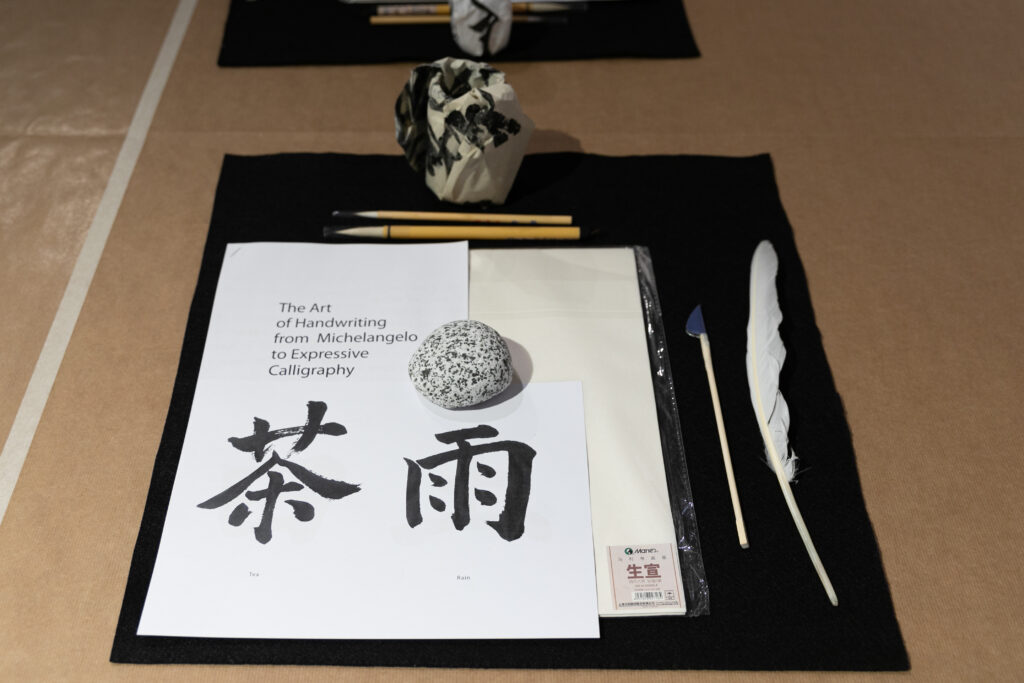 The Art
of Handwriting
from Michelangelo
to Expressive
Calligraphy
茶 雨
Tea Rain
Marie's
生宣